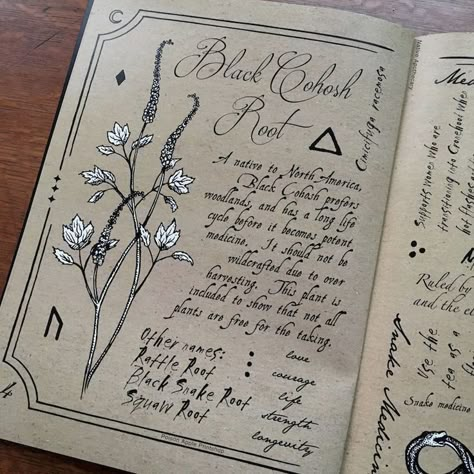 Black Cohosh
Root
Cimicifuga racemosa
A native to North America,
Black Cohosh prefers
woodlands, and has a long life
cycle before it becomes potent
medicine. It should not be
wildcrafted due to over
harvesting. This plant is
included to show that not all
plants are free for the taking.
Other names:
Rattle Root
Black Snake Root
Squaw Root
love
courage
life
strength
longevity
Poison Apple Printshop
Supports Women who are
transitioning into
Ruled by
and the
Use the
tea as a
Snake medicine
Snake Medicine